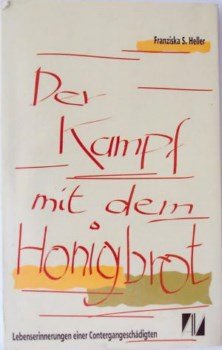 Franziska S. Heller
Der
Kampf
mit dem
Honigbrot
Lebenserinnerungen einer Contergangeschädigten